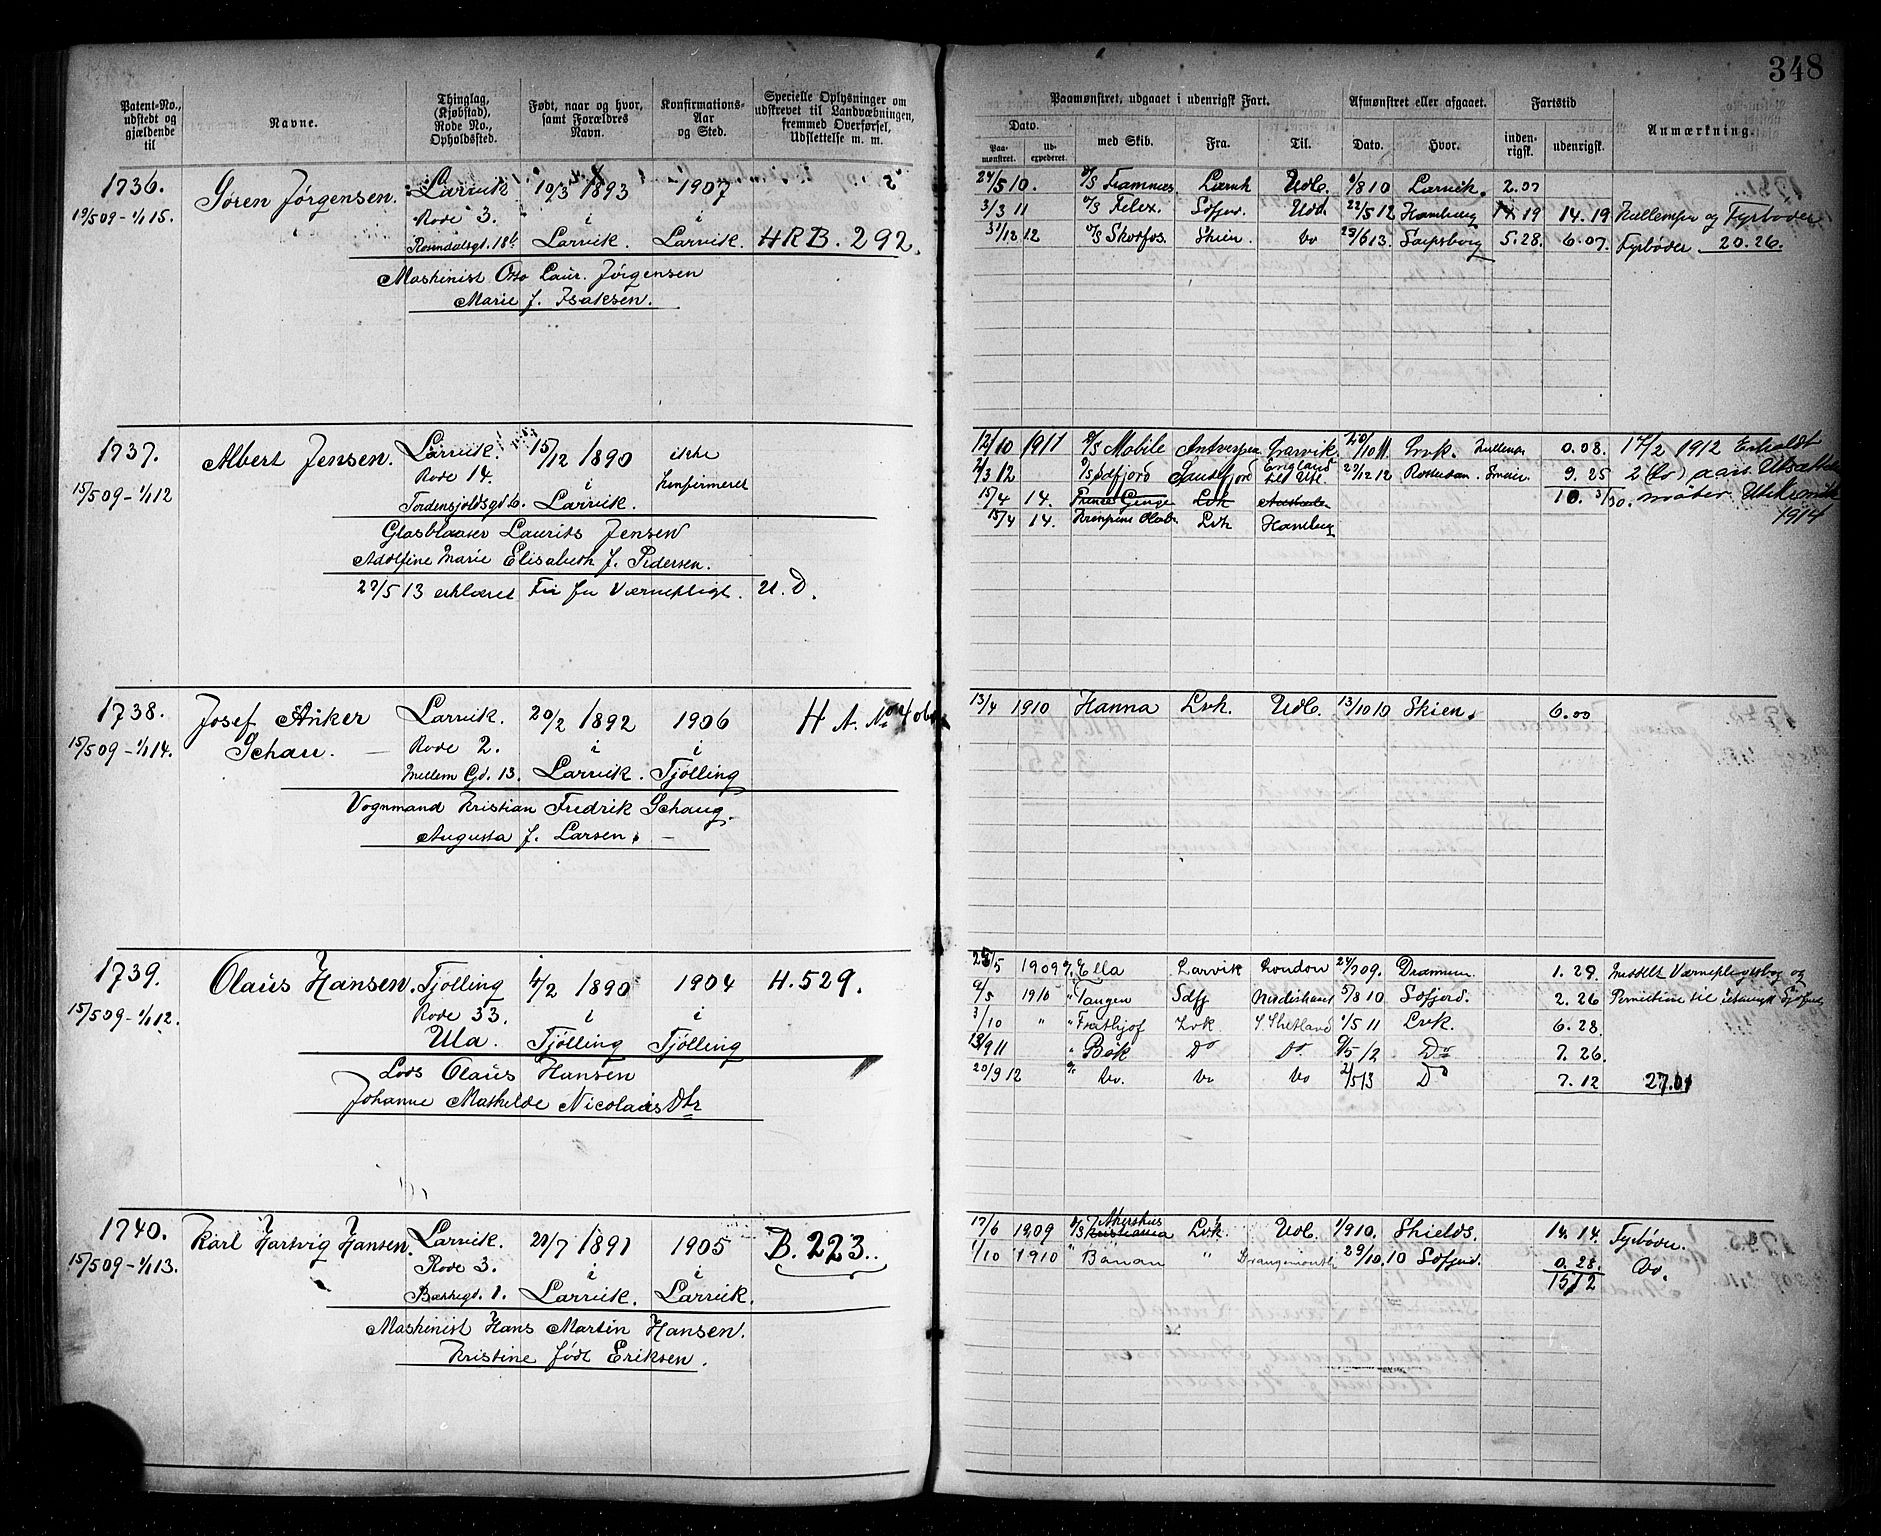 348
Patent-No., udstedt og gjældende til
Navne.
Thinglag, (Kjøbstad), Rode No., Opholdssted.
Født, naar og hvor, samt Forældres Navn.
Konfirmations-Aar og Sted.
Specielle Oplysninger om udskrevet til Landvæbningen, fremmed Overførsel, Udslettelse m. m.
Paamønstret, udgaaet i udenrigsk Fart.
Afmønstret eller afgaaet.
Fartstid
Anmærkning.
Dato.
Paamønstret. Udexpederet. med Skib. Fra. Til. Dato. Hvor. indenrigsk. udenrigsk.
1736. Søren Jørgensen. Larvik 10/3 1893 1907
15. Rode 3. i i
Larvik. Larvik. HRB. 292.
Maskinist Otto Laur. Jørgensen
Marie f. Isaksen.
24/5 10. D/S Framnæs Larvik Udl. 8 10 Larvik. 2.07
3/3 11 D/S Felex. Sdfjord. Udl. 22/5 12 Hamburg 14.19 14.19 Kullemper og Fyrbøder
31/12 12 D/S Skotfos. Skien. Do 23/6 13. Sarpsborg 5.28. 6.07. Fyrbøder 20.26.
1737. Albert Jensen. Larvik. 15/12 1890 ikke
15/5 09 - 1/1 12 Rode 14. i konfirmeret
Tordenskjoldsgd 6. Larvik.
Glasblaaser Laurits Jensen
Adolfine Marie Elisabeth f. Pedersen.
27/5 13 erklæret Fri for Værnepligt. U.D.
12/10 1911 D/S Mobile Antverpen Larvik 20/10 11 Lrvk. Kullemp. 0.08. 17/2 1912 Erholdt
3 12 D/S Sødfjord Sandefjord England 27/12 12 Rotterdam. 9.25 2 (to) aars Udsættelse
15/4 14. Princes George Lvk 10. 3/30. møter Utskrivn.
15/4 14. Kronprins Olav Lvk Hamburg 1914
1738. Josef Anker Larvik. 20/2 1892 1906
15/5 09 - 1/1 14. Schau. Rode 2. i i
Mellem Gd. 13. Larvik. Tjølling
Vognmand Kristian Fredrik Schaug.
Augusta f. Larsen.
13/4 1910 Hanna Lvk. Udl. 13/10 10 Skien. 6.00
1739. Olaüs Hansen. Tjølling 4/2 1890 1904 H. 529.
15/5 09 - 1/1 12. Rode 33. i i
Ula. Tjølling Tjølling
Lods Olaüs Hansen
Johanne Mathilde Nicolaüs Dtr
1909 Ella Larvik London 24/7 09. Drammen 1.29. Meddelt Værnepligtsbog og
1910 " Tangen Sdfj 5/8 10 Sdfjord. 2.26 Permission til udenrigsk Sjøfart
3/10 " " Frithjof Lvk. S. Shetland 1/5 11 Lvk. 6.28.
13/9 11 " Bak Do Do. 9/5 12 Do 7.26.
20/9 12 Do. Do Do 2/5 13 Do 7.12 27.01
1740. Karl Hartvig Hansen. Larvik. 20/7 1891 1905 B. 223.
15/5 09 - 1/1 13. Rode 3. i i
Bækkegd. 1. Larvik. Larvik.
Maskinist Hans Martin Hansen.
Kristine født Eriksen.
17/6 1909 D/S Kristiania Akershus Lvk. Udl. 1/9 10. Shields. 14.14. Fyrbøder.
1/10 1910 " Banan " Drangemouth 29/10.10 Sdfjord. 0.28. Do.
15/12